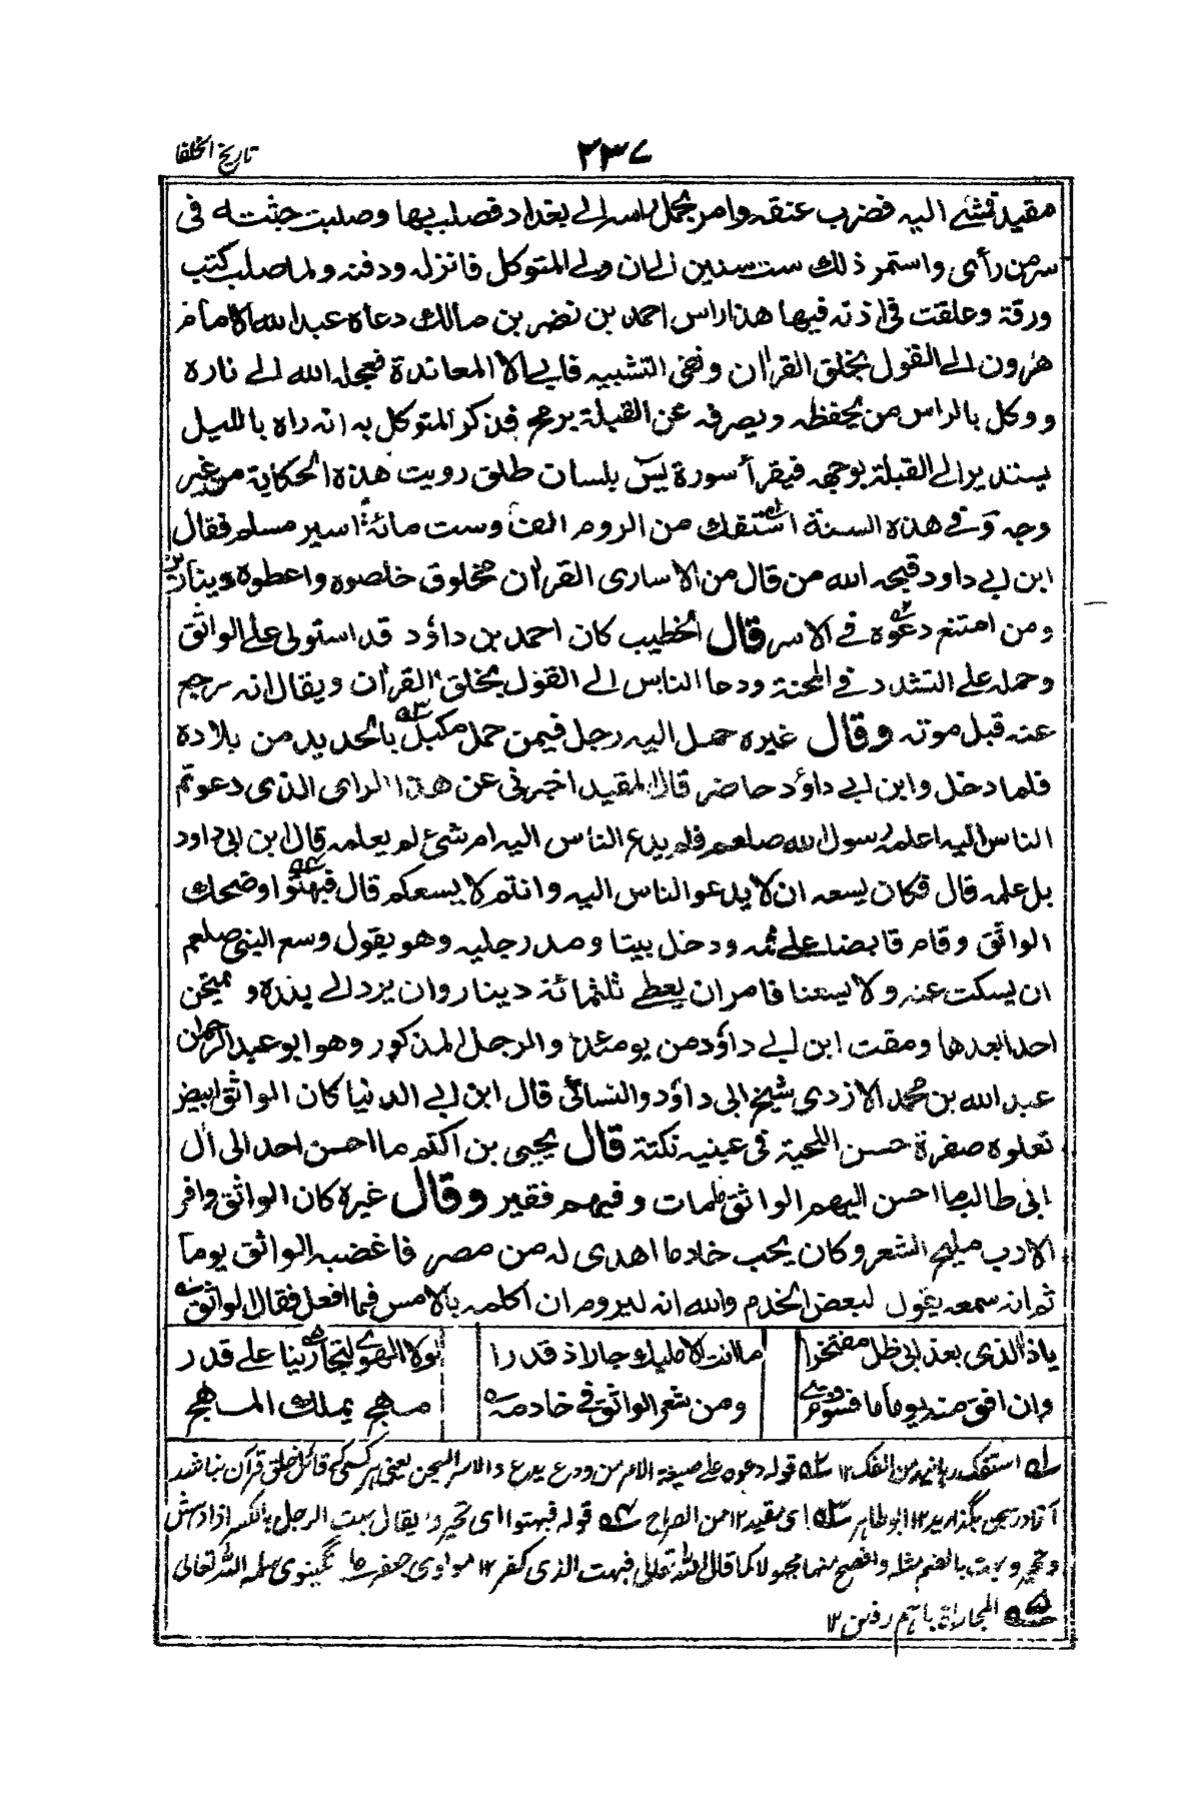 ٢٣٧
تاريخ الخلفا
مقيد فمشے اليه فضرب عنقه وامر بحمل راسه الے بغداد فصلب بها وصلبت جثته فى
سر من رأى واستمر ذلك ست سنين الے ان ولے المتوكل فانزله ودفنه ولما صلب كتب
ورقة وعلقت فى اذنه فيها هذا راس احمد بن نصر بن مالك دعاه عبد الله الامام
هرون الے القول بخلق القرأن ونفى التشبيه فابے الا المعاندة فعجله الله الے ناره
ووكل بالراس من يحفظه ويصرفه عن القبلة برمح فذكر المتوكل به انه راه بالليل
يستدير الے القبلة بوجهه فيقرأ سورة يٓس بلسان طلق رويت هذه الحكاية من غير
وجه وفے هذه السنة استفك من الروم الف وست مائة اسير مسلم فقال
ابن ابے داود قبحه الله من قال من الاسارى القرأن مخلوق خلصوه واعطوه دينارين
ومن امتنع دعوه فے الاسر قال الخطيب كان احمد بن داؤد قد استولى على الواثق
وحمله على التشدد فے المحنة ودعا الناس الے القول بخلق القرأن ويقال انه رجع
عنه قبل موته وقال غيره حمل اليه رجل فيمن حمل مكبل بالحديد من بلاده
فلما دخل وابن ابے داؤد حاضر قال المقيد اخبرنى عن هذا الراى الذى دعوتم
الناس اليه اعلمه رسول الله صلعم فلم يدع الناس اليه ام شئ لم يعلمه قال ابن ابى داود
بل علمه قال فكان يسعه ان لا يدعو الناس اليه وانتم لا يسعكم قال فبهتوا وضحك
الواثق وقام قابضا على فمه ودخل بيتا ومد رجليه وهو يقول وسع النبى صلعم
ان يسكت عنه ولا يسعنا فامر ان يعطے ثلثمائة دينار وان يرد الے بلده و يمتحن
احدا بعدها ومقت ابن ابے داؤد من يومئذ والرجل المذكور وهو ابو عبد الرحمان
عبد الله بن محمد الازدى شيخ ابى داؤد والنسائى قال ابن ابے الدنيا كان الواثق ابيض
تعلوه صفرة حسن اللحية فى عينيه نكتة قال يحيى بن اكثم ما احسن احد الى أل
ابى طالب ما احسن اليهم الواثق مامات وفيهم فقير وقال غيره كان الواثق وافر
الادب مليح الشعر وكان يحب خادما اهدى له من مصر فاغضبه الواثق يوما
ثم انه سمعه يقول لبعض الخدم والله انه ليروم ان اكلمه بالامس فما افعل فقال الواثق
ياذا الذى بعذابى ظل مفتخرا ما انت الا مليك جار اذ قدرا لولا الهوى لتجارينا على قدر
وان افق منه يوما ما فسوف ترى ومن شعر الواثق فے خادمه مهج يملك المهج
له استفك رہانيد من الفك ١٢ ٢ه قوله دعوه على صيغة الامر من ودع يدع والاسر السجن يعنى ہر كسى كہ قائل خلق قرآن نباشد
آنرا در سجن بگذاريد ١٢ ابو طاہر ٣ه اى مقيد ١٢ من الصراح ٤ه قوله فبهتوا اى تحيروا يقال بهت الرجل بالكسر اذا دهش
وتحير وبهت بالضم مثله وافصح منهما مجهولا كما قال الله تعالى فبهت الذى كفر ١٢ مولوى نگينوى سلمه الله تعالى
٥ه المجاراة باہم رفتن ١٢